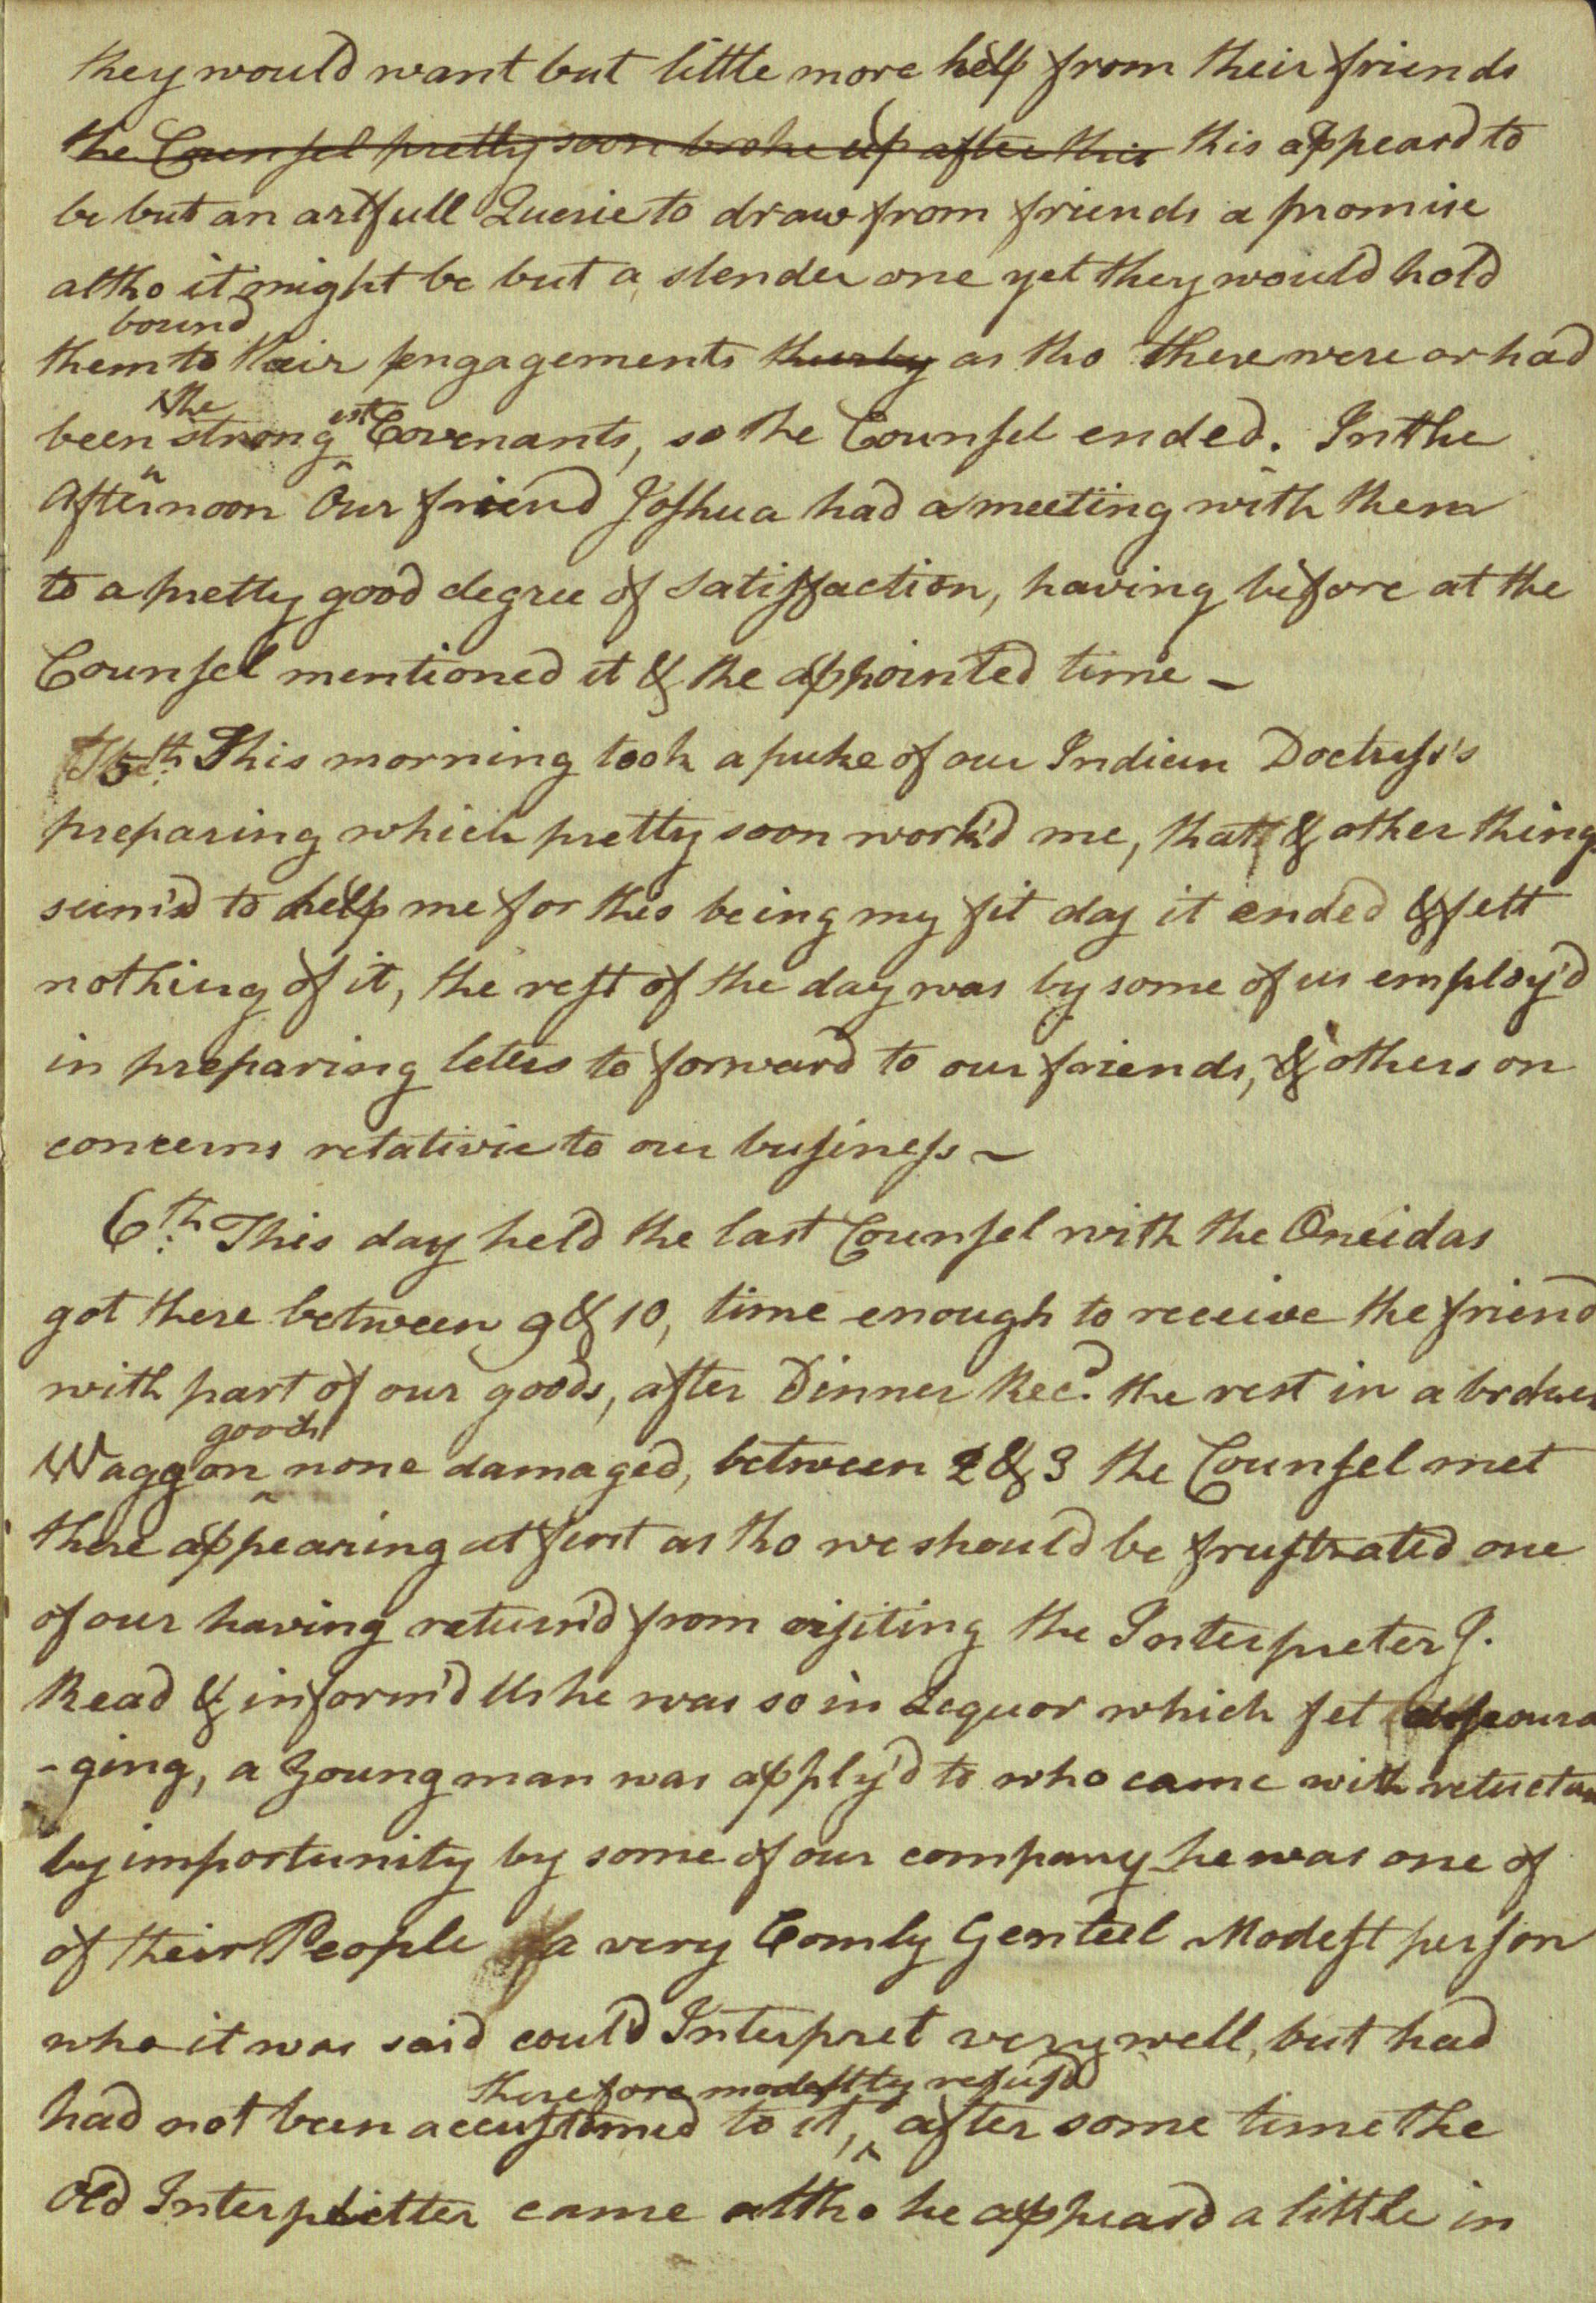 they would want but little more help from their friends
the Counsel pretty soon broke up after this this appeard to
be but an artfull Querie to draw from friends a promise
altho it might be but a slender one yet they would hold
bound
them to their engagements thereby as tho there were or had
the est
been strong Covenants, so the Counsel ended. In the
Afternoon Our friend Joshua had a meeting with them
to a pretty good degree of satisfaction, having before at the
Counsel mentioned it & the appointed time –
5th This morning took a puke of our Indian Doctress's
preparing which pretty soon work'd me, that & other things
seem'd to help me for this being my fit day it ended & felt
nothing of it, the rest of the day was by some of us employ'd
in preparing leters to forward to our friends, & others on
concerns relative to our business –
6th This day held the last Counsel with the Oneidas
got there between 9 & 10, time enough to receive the friend
with part of our goods, after Dinner Recd. the rest in a broken
goods
Waggon none damaged, between 2 & 3 the Counsel met
there appearing at first as tho we should be frustrated one
of our having return'd from visiting the Interpreter J.
Read & inform'd Us he was so in Lequor which felt discoura
-ging, a Young man was apply'd to who came with reluctan
by importunity by some of our company he was one of
of their People a very Comly Genteel Modest person
who it was said could Interpret very well, but had
therefore modestly refus'd
had not been accustomed to it, after some time the
Old Interpritter came altho he appeard a little in